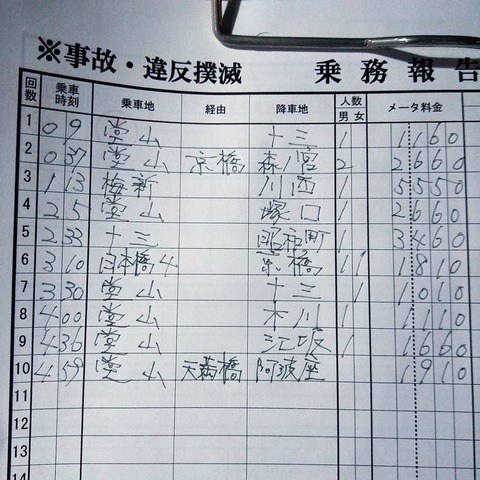 ※事故・違反撲滅 乗務報告
回数 乗車時刻 乗車地 経由 降車地 人数 男 女 メータ料金
1 0 09 堂山 十三 1 1160
2 0 37 堂山 京橋 森ノ宮 2 2660
3 1 13 梅新 川西 1 5550
4 2 5 堂山 塚口 1 2660
5 2 33 十三 昭和町 1 3460
6 3 10 日本橋4 京橋 1 1 1810
7 3 30 堂山 十三 1 1010
8 4 00 堂山 木川 1 1110
9 4 36 堂山 江坂 1 1660
10 4 59 堂山 天満橋 阿波座 1910
11
12
13
14